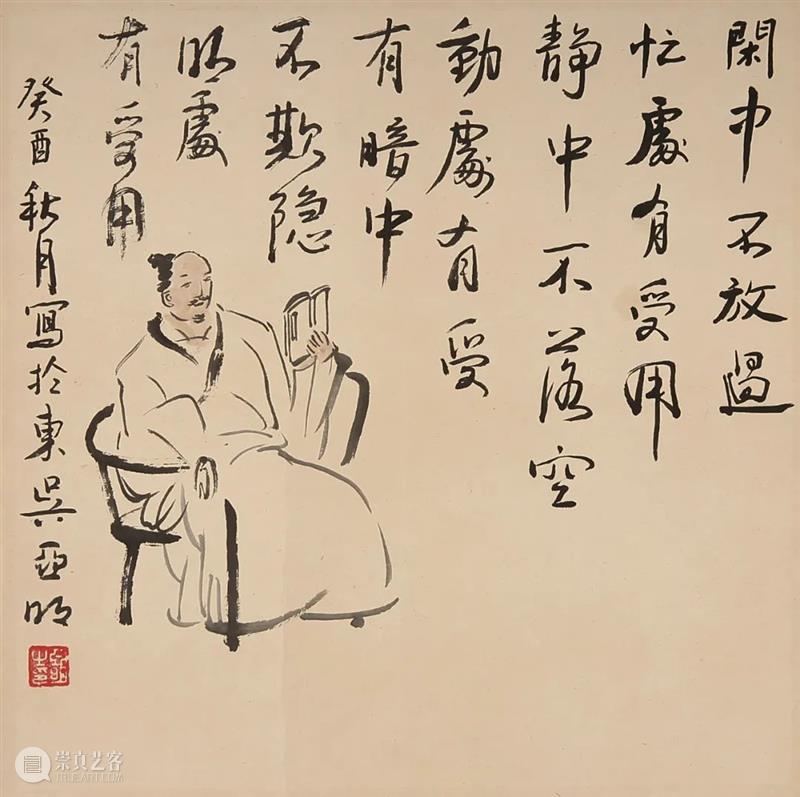 閑中不放過
忙處有受用
静中不落空
動處有受
有暗中
不欺隐
明處
有受用
癸酉秋月寫於東吳亞明
崇真艺客